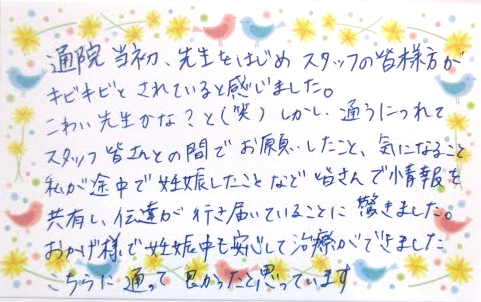 通院当初、先生をはじめ スタッフの皆様方が
キビキビと されていると感じました。
こわい先生かな？と（笑）しかし 通うにつれて
スタッフ皆さんとの間で お願いしたこと、気になること
私が途中で妊娠したことなど 皆さんで情報を
共有し、伝達が行き届いていることに 驚きました。
おかげ様で妊娠中も安心して治療ができました
こちらに 通って 良かったと思っています